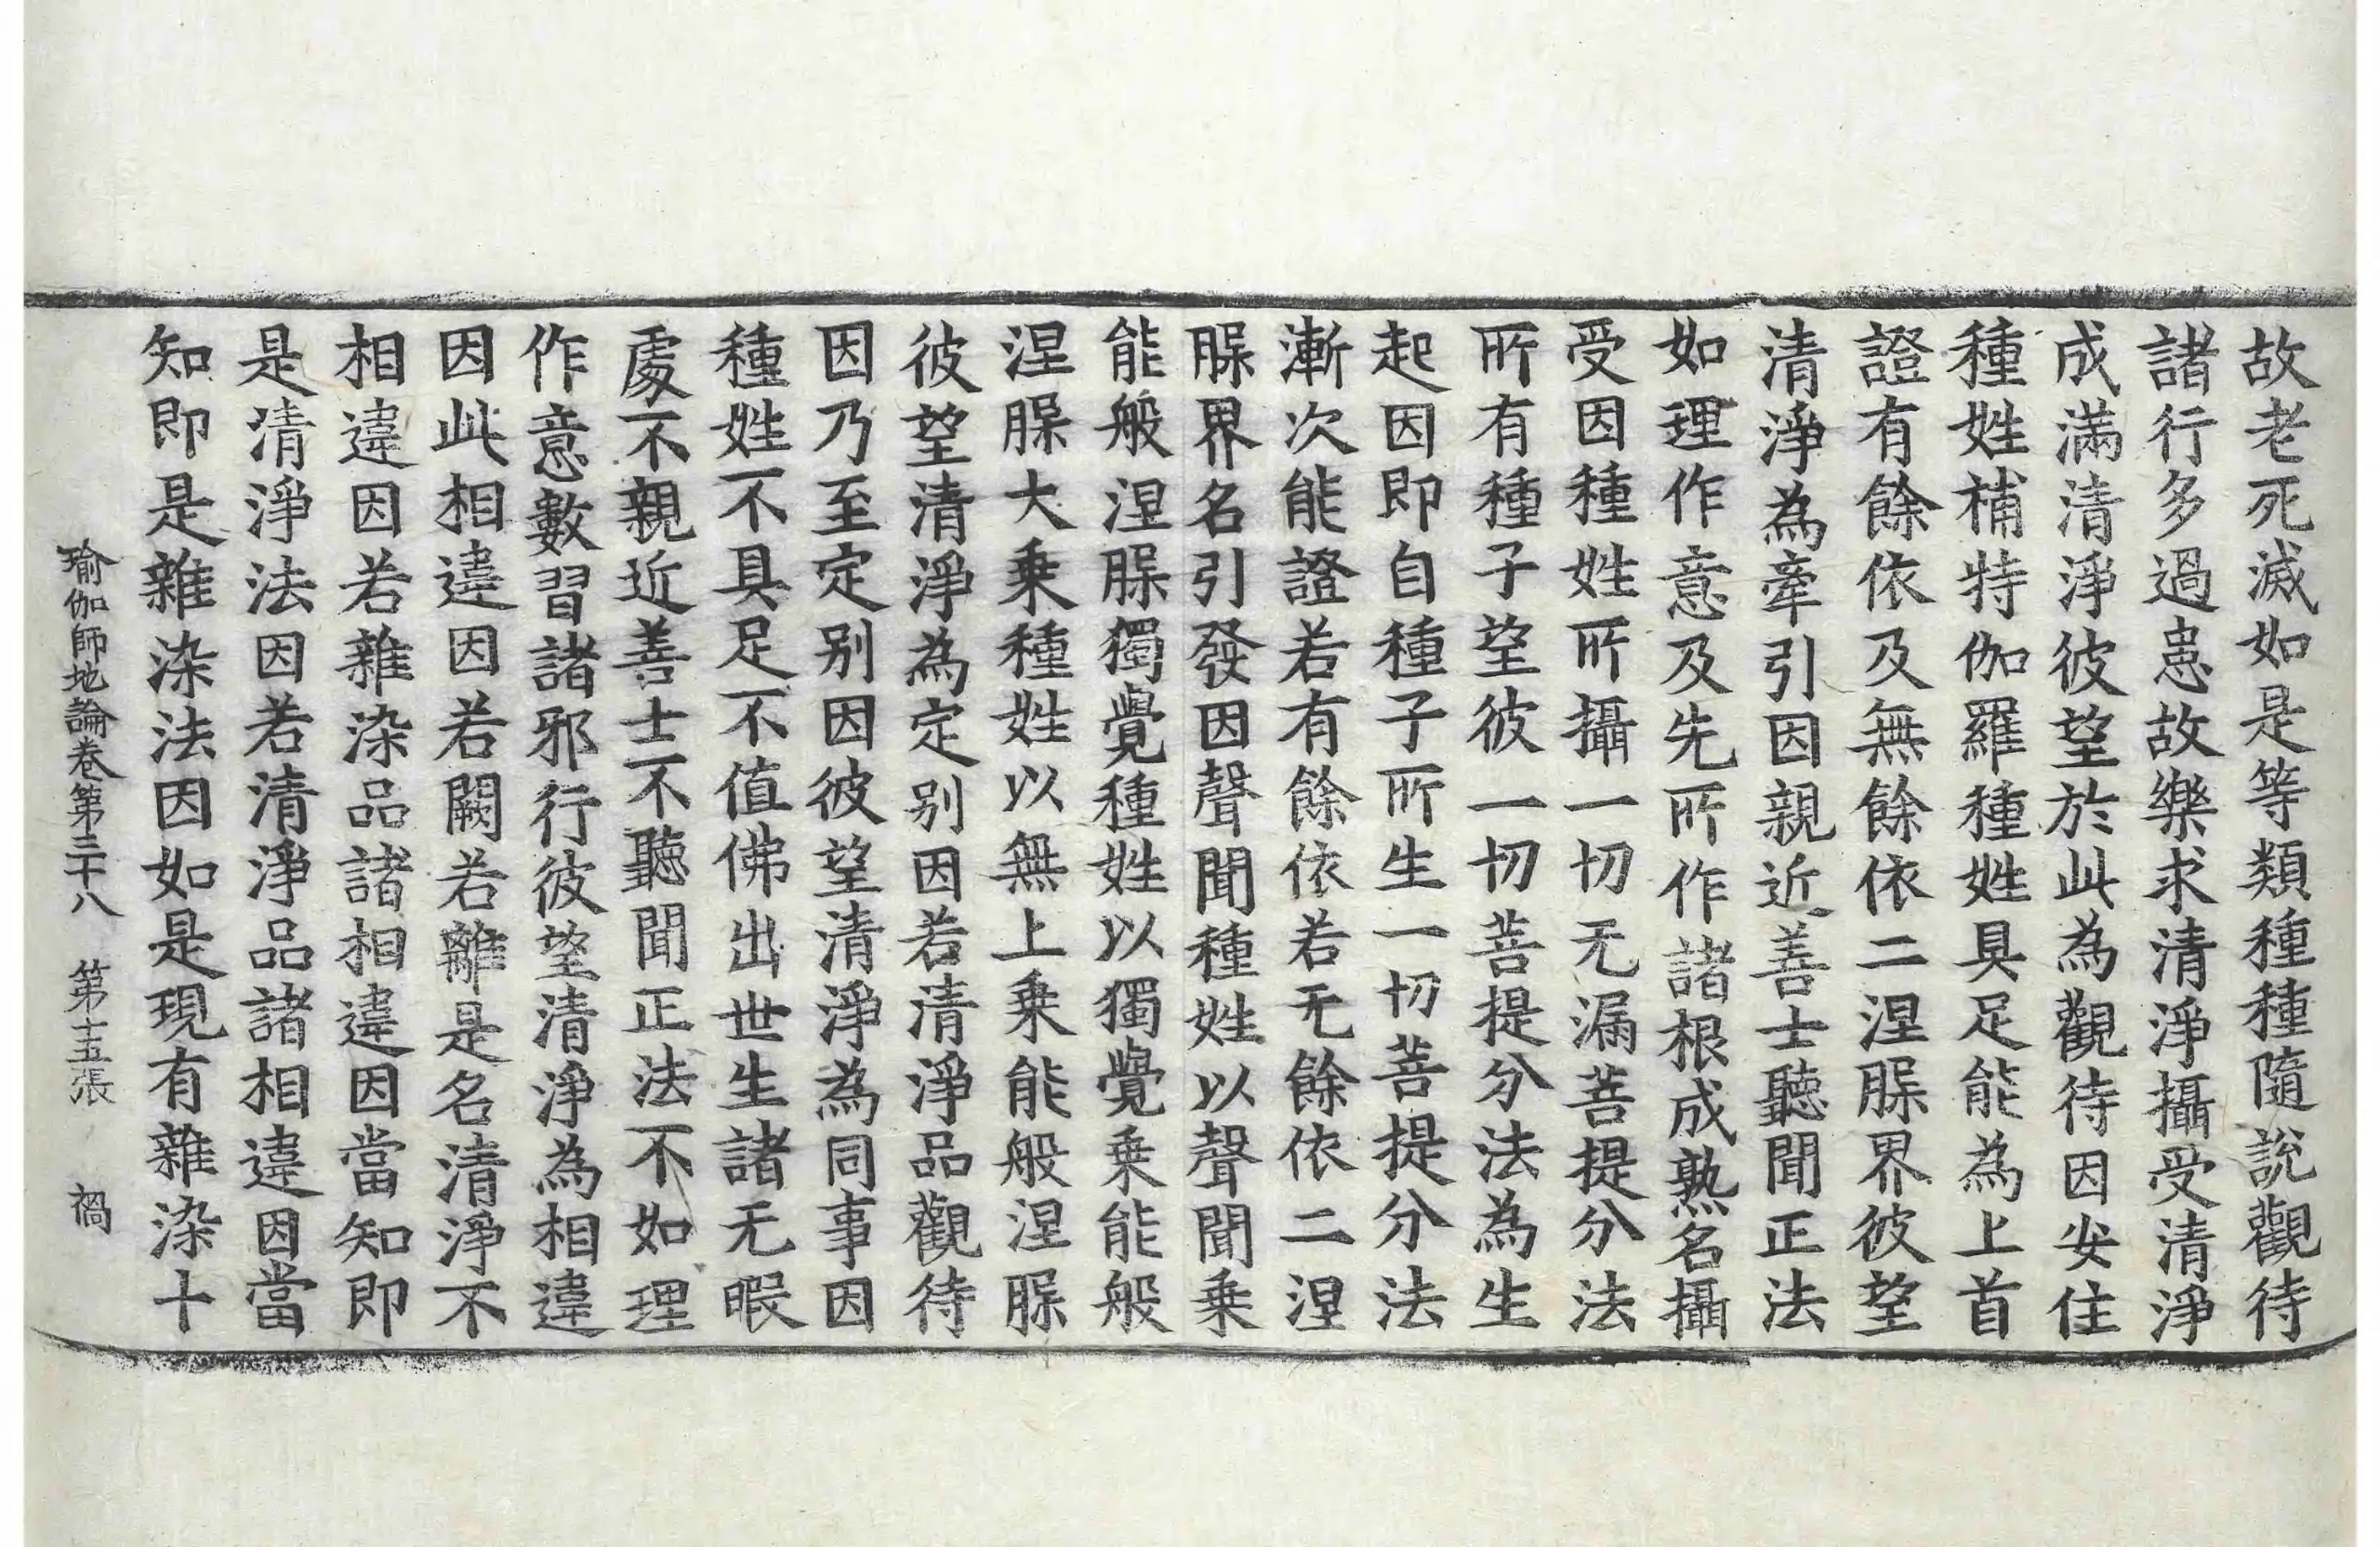 故老死滅如是等類種種隨說觀待
諸行多過患故樂求清淨攝受清淨
成滿清淨彼望於此為觀待因安住
種姓補特伽羅種姓具足能為上首
證有餘依及無餘依二涅槃界彼望
清淨為牽引因親近善士聽聞正法
如理作意及先所作諸根成熟名攝
受因種姓所攝一切无漏菩提分法
所有種子望彼一切菩提分法為生
起因即自種子所生一切菩提分法
漸次能證若有餘依若无餘依二涅
槃界名引發因聲聞種姓以聲聞乗
能般涅槃獨覺種姓以獨覺乗能般
涅槃大乗種姓以無上乗能般涅槃
彼望清淨為定别因若清淨品觀待
因乃至定别因彼望清淨為同事因
種姓不具足不值佛出世生諸无暇
處不親近善士不聽聞正法不如理
作意數習諸邪行彼望清淨為相違
因此相違因若闕若離是名清淨不
相違因若雜染品諸相違因當知即
是清淨法因若清淨品諸相違因當
知即是雜染法因如是現有雜染十
瑜伽師地論卷第三十八 第十五張 禍